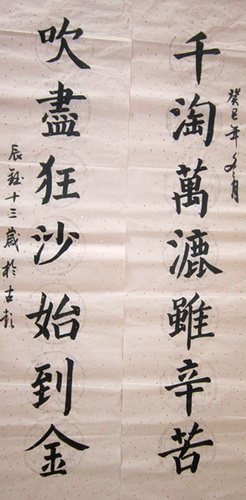 癸巳年冬月
千淘萬漉雖辛苦
吹盡狂沙始到金
辰鈺十三歲於古彭